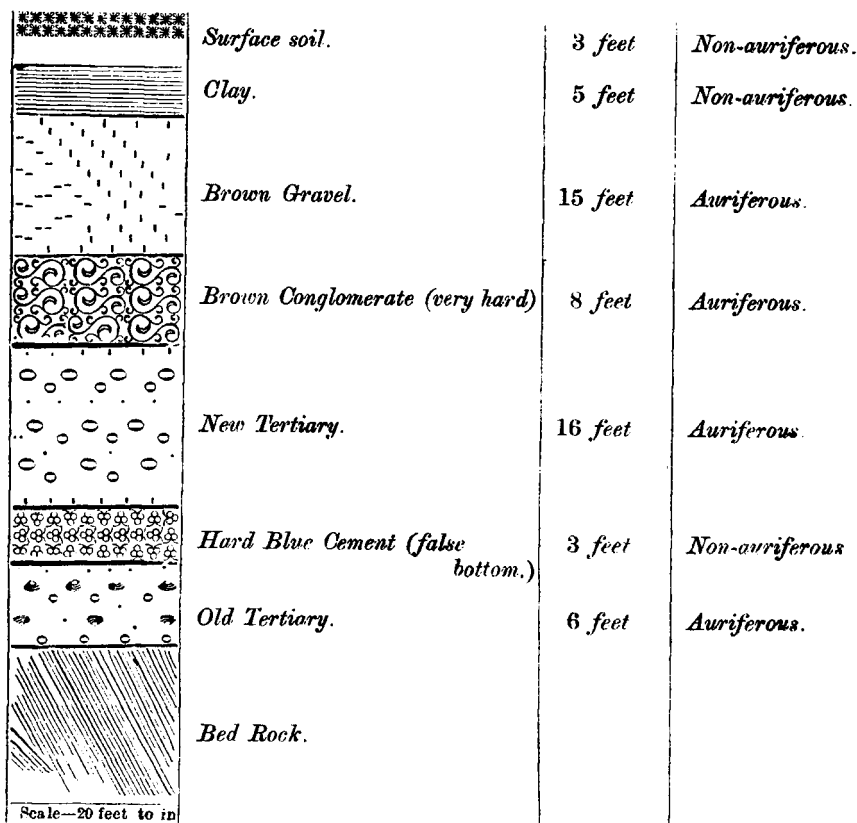 Surface soil. 3 feet Non-auriferous.
Clay. 5 feet Non-auriferous.
Brown Gravel. 15 feet Auriferous.
Brown Conglomerate (very hard) 8 feet Auriferous.
New Tertiary. 16 feet Auriferous
Hard Blue Cement (false 3 feet Non-auriferous
bottom.)
Old Tertiary. 6 feet Auriferous.
Bed Rock.
Scale—20 feet to in